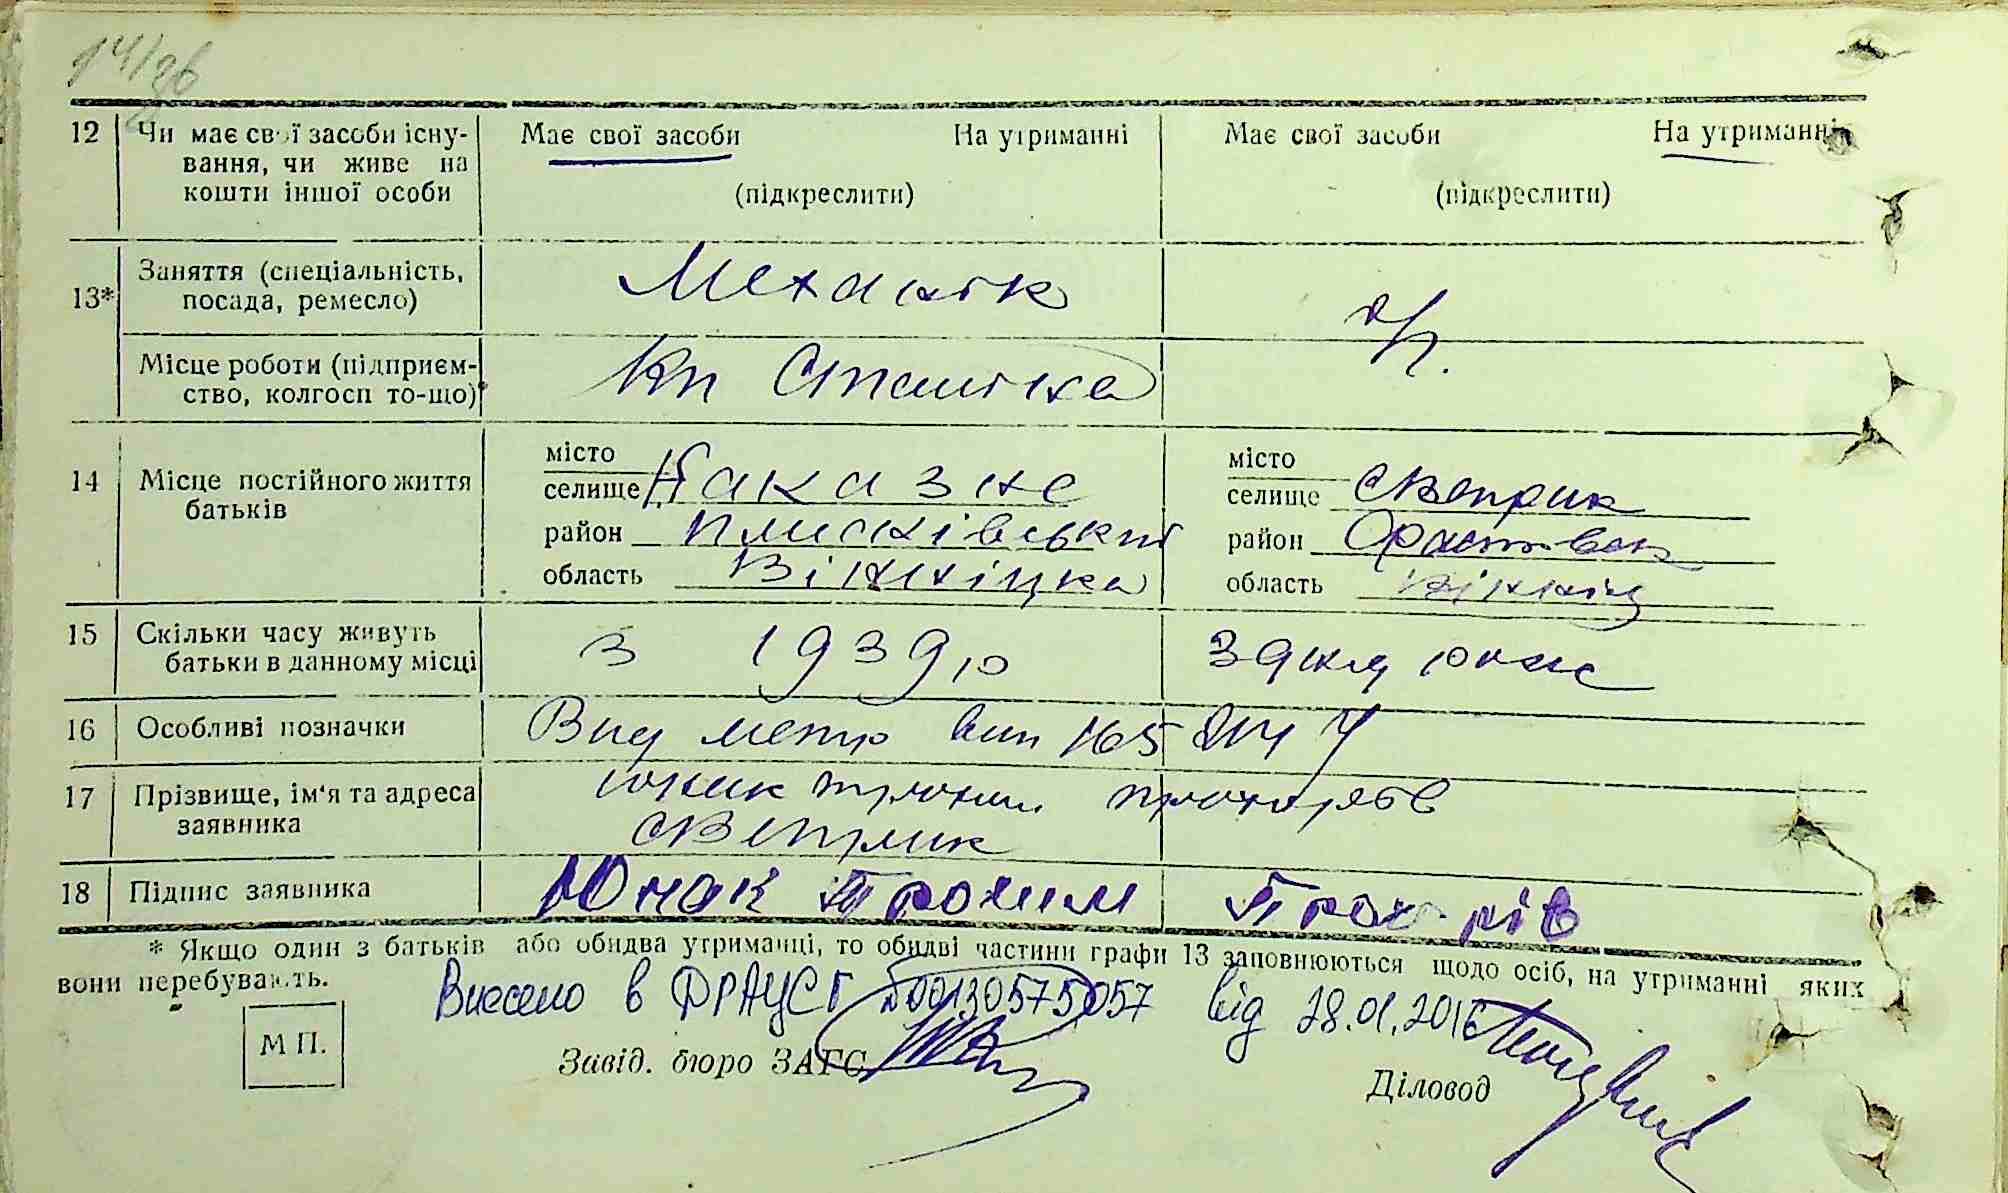 14/26
12 Чи має свої засоби існу- Має свої засоби На утриманні Має свої засоби На утриманні
вання, чи живе на
кошти іншої особи (підкреслити) (підкреслити)
13* Заняття (спеціальність, Механік
посада, ремесло) д/г.
Місце роботи (підприєм- Кп
ство, колгосп то-що)
14 Місце постійного життя місто місто
батьків селище Наказне селище Свеприк
район Плисківський район
область Вінніцка область Вінніц
15 Скільки часу живуть з 1939 ю
батьки в данному місці
16 Особливі позначки Вид метр 165
17 Прізвище, ім'я та адреса Юнак Трохим Прохорів
заявника Свеприк
18 Підпис заявника Юнак Трохим Прохорів
* Якщо один з батьків або обидва утриманці, то обидві частини графи 13 заповнюються щодо осіб, на утриманні яких
вони перебувають.
Внесено в ДРАЦСГ 00130575057 від 28.01.2016
М П. Завід. бюро ЗАГС
Діловод